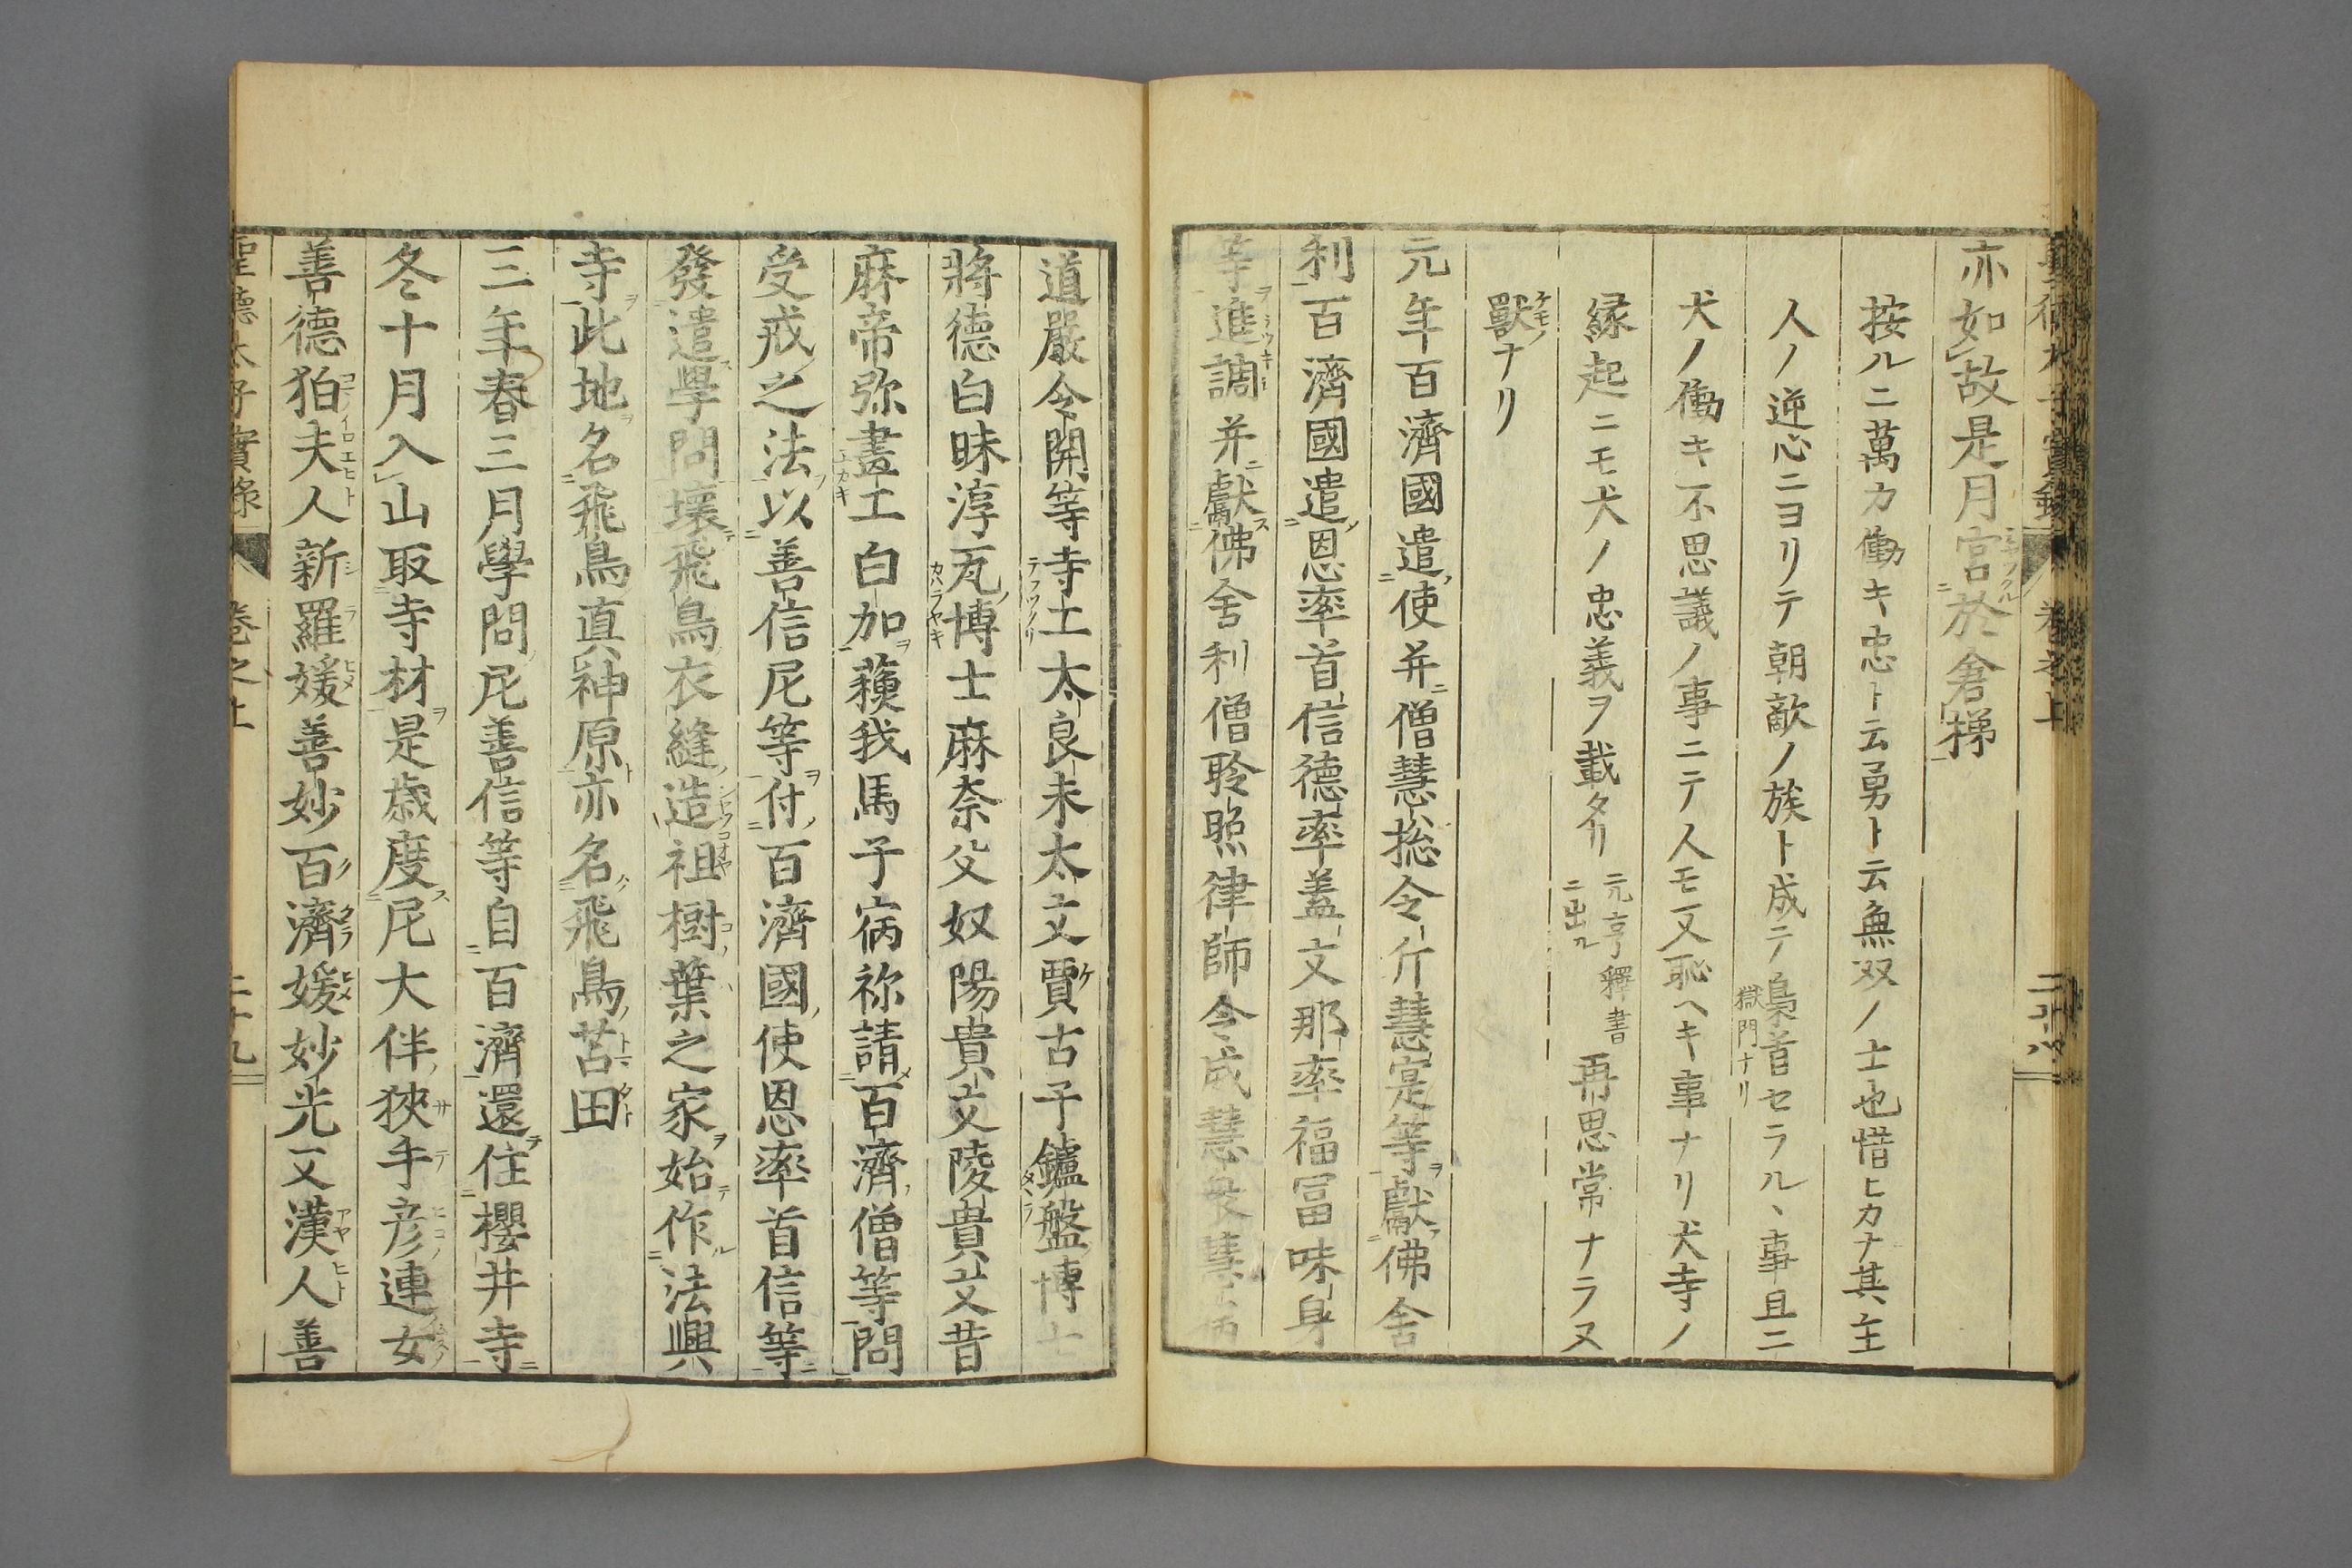 亦如故是月宮於倉梯
按ルニ萬カ働キ忠ト云勇ト云無双ノ士也惜ヒカナ其主
人ノ逆心ニヨリテ朝敵ノ族ト成テ梟首獄門ナリセラル、事且ニ
犬ノ働キ不思議ノ事ニテ人モ又恥ヘキ事ナリ犬寺ノ
縁起ニモ犬ノ忠義ヲ載タリ元亨釋書ニ二出ル再思常ナラヌ
獸ナリ
元年百濟國遣使并僧慧揔令斤慧寔等獻佛舎
利百濟國遣恩率首信德率蓋文那率福冨味身
等進調并獻佛舎利僧聆照律師令威慧衆慧
道嚴令開等寺土太良未太文賈古子鑪盤博士
將德白昧淳瓦博士麻奈父奴陽貴文陵貴文昔
麻帝弥畫工白加蘓我馬子病祢請百濟僧等問
受戒之法以善信尼等付百濟國使恩率首信等
發遣學問壊飛鳥衣縫造祖樹葉之家始作法興
寺此地名飛鳥真神原亦名飛鳥苫田
三年春三月學問尼善信等自百濟還住櫻井寺
冬十月入山取寺材是歳度尼大伴狹手彦連女
善德狛夫人新羅媛善妙百濟媛妙光又漢人善
聖德太子實錄 卷之上 二十九